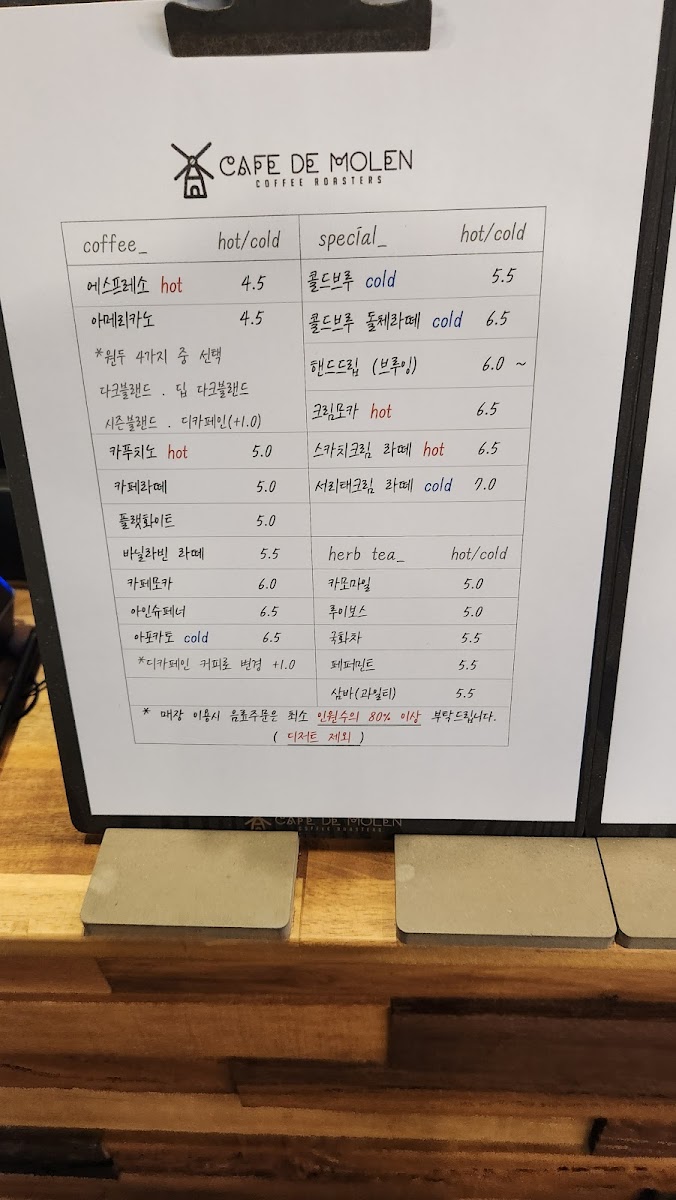 CAFE DE MOLEN
COFFEE ROASTERS
coffee_ hot/cold
에스프레소 hot 4.5
아메리카노 4.5
*원두 4가지 중 선택
다크블랜드 . 딥 다크블랜드
시즌블랜드 . 디카페인(+1.0)
카푸치노 hot 5.0
카페라떼 5.0
플랫화이트 5.0
바닐라빈 라떼 5.5
카페모카 6.0
아인슈페너 6.5
아포카토 cold 6.5
*디카페인 커피로 변경 +1.0
special_ hot/cold
콜드브루 cold 5.5
콜드브루 돌체라떼 cold 6.5
핸드드립 (브루잉) 6.0 ~
크림모카 hot 6.5
스카치크림 라떼 hot 6.5
서리태크림 라떼 cold 7.0
herb tea_ hot/cold
카모마일 5.0
루이보스 5.0
국화차 5.5
페퍼민트 5.5
삼바(과일티) 5.5
* 매장 이용시 음료주문은 최소 인원수의 80% 이상 부탁드립니다.
( 디저트 제외 )
CAFE DE MOLEN
COFFEE ROASTERS